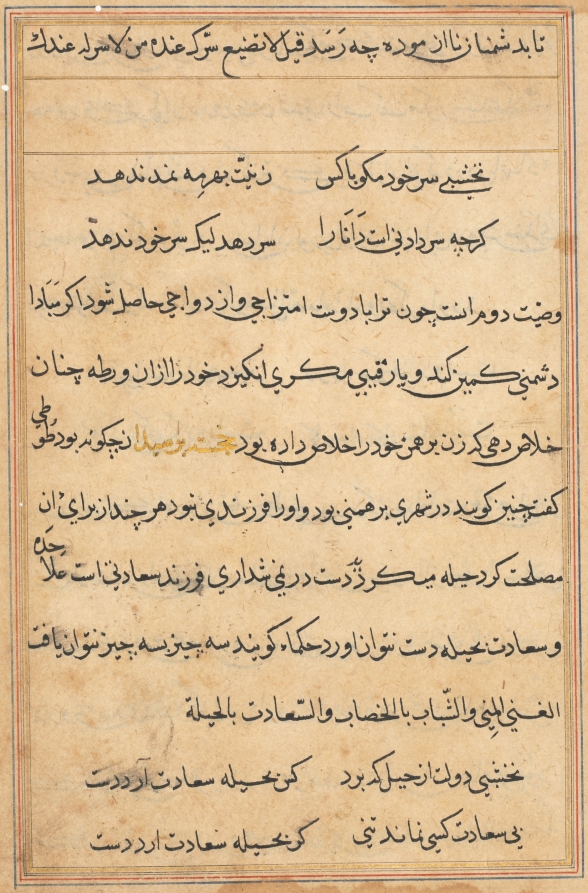 تا بدشمنان ناازموده چه رسد قیل لا تضیع سرک عنده من لا سر له عندک
نخشبی سر خود مکو با کس زنیت بهر مه نمد ندهد
کرچه سر دادنی است دانا را سر دهد لیک سر خود ندهد
وصیت دوم اینست چون ترا با دوست امتزاجی و از دواجی حاصل شود اکر مبادا
دشمنی کمین کند و یا رقیبی مکری انکیزد خود را ازان ورطه چنان
خلاص دهی که زن برهمن خود را خلاص داده بود خجسته پرسید ان چکونه بود طوطی
کفت چنین کویند در شهری برهمنی بود و اورا فرزندی نبود هر چند از برای ان
مصلحت کرد حیله میکرد دست در نمی شد اری فرزند سعادتی است علاحده
و سعادت بحیله دست نتوان اورد حکماء کویند سه چیز بسه چیز نتوان یافت
الغنی بالمنی والشباب بالخضاب والسعادت بالحیلة
نخشبی دولت از حیل که برد کس بحیله سعادت آرد دست
بی سعادت کسی نماند نی کر بحیله سعادت ارد دست